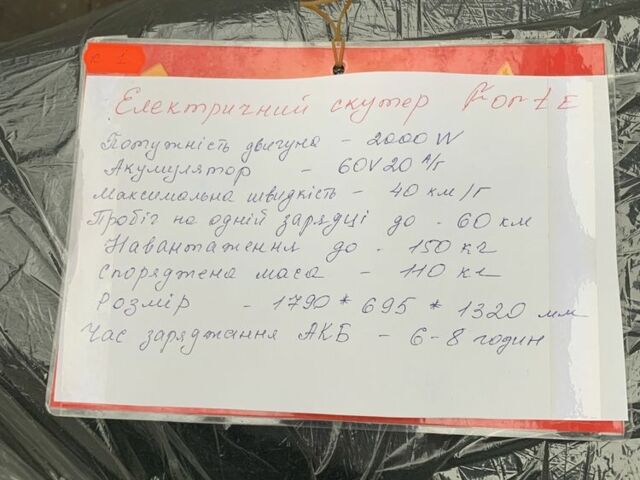 Електричний скутер Forte
Потужність двигуна - 2000W
Акумулятор - 60V20 А/г
Максимальна швидкість - 40 км/г
Пробіг на одній зарядці до - 60 км
Навантаження до - 150 кг
Споряджена маса - 110 кг
Розмір - 1790 * 695 * 1320 мм
Час заряджання АКБ - 6-8 годин